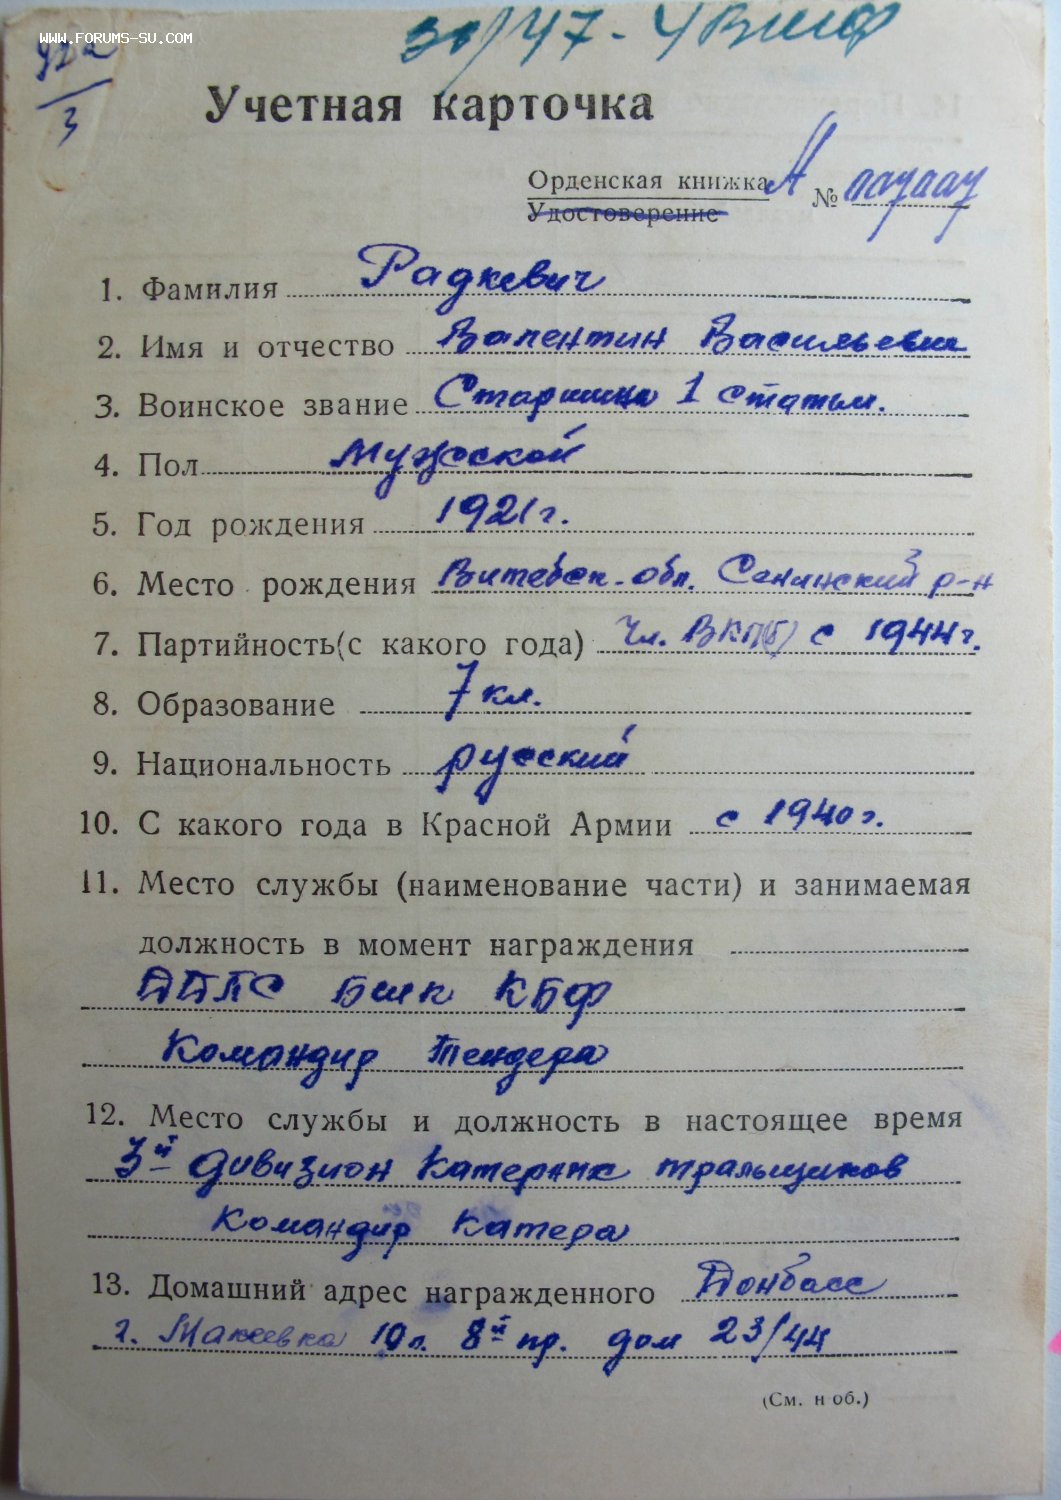 WWW.FORUMS-SU.COM
30/47-
3
Учетная карточка
Орденская книжка А №
Удостоверение
1. Фамилия Радкевич
2. Имя и отчество Валентин Васильевич
3. Воинское звание Старшина 1 статьи.
4. Пол Мужской
5. Год рождения 1921 г.
6. Место рождения Витебск. обл. Сенинский р-н
7. Партийность (с какого года) Чл. ВКП(б) с 1944 г.
8. Образование 7 кл.
9. Национальность русский
10. С какого года в Красной Армии с 1940 г.
11. Место службы (наименование части) и занимаемая
должность в момент награждения
КБФ
Командир Тендера
12. Место службы и должность в настоящее время
3й дивизион Катерных тральщиков
Командир Катера
13. Домашний адрес награжденного Донбасс
г. Макеевка 8й пр. дом 23/44
(См. н об.)